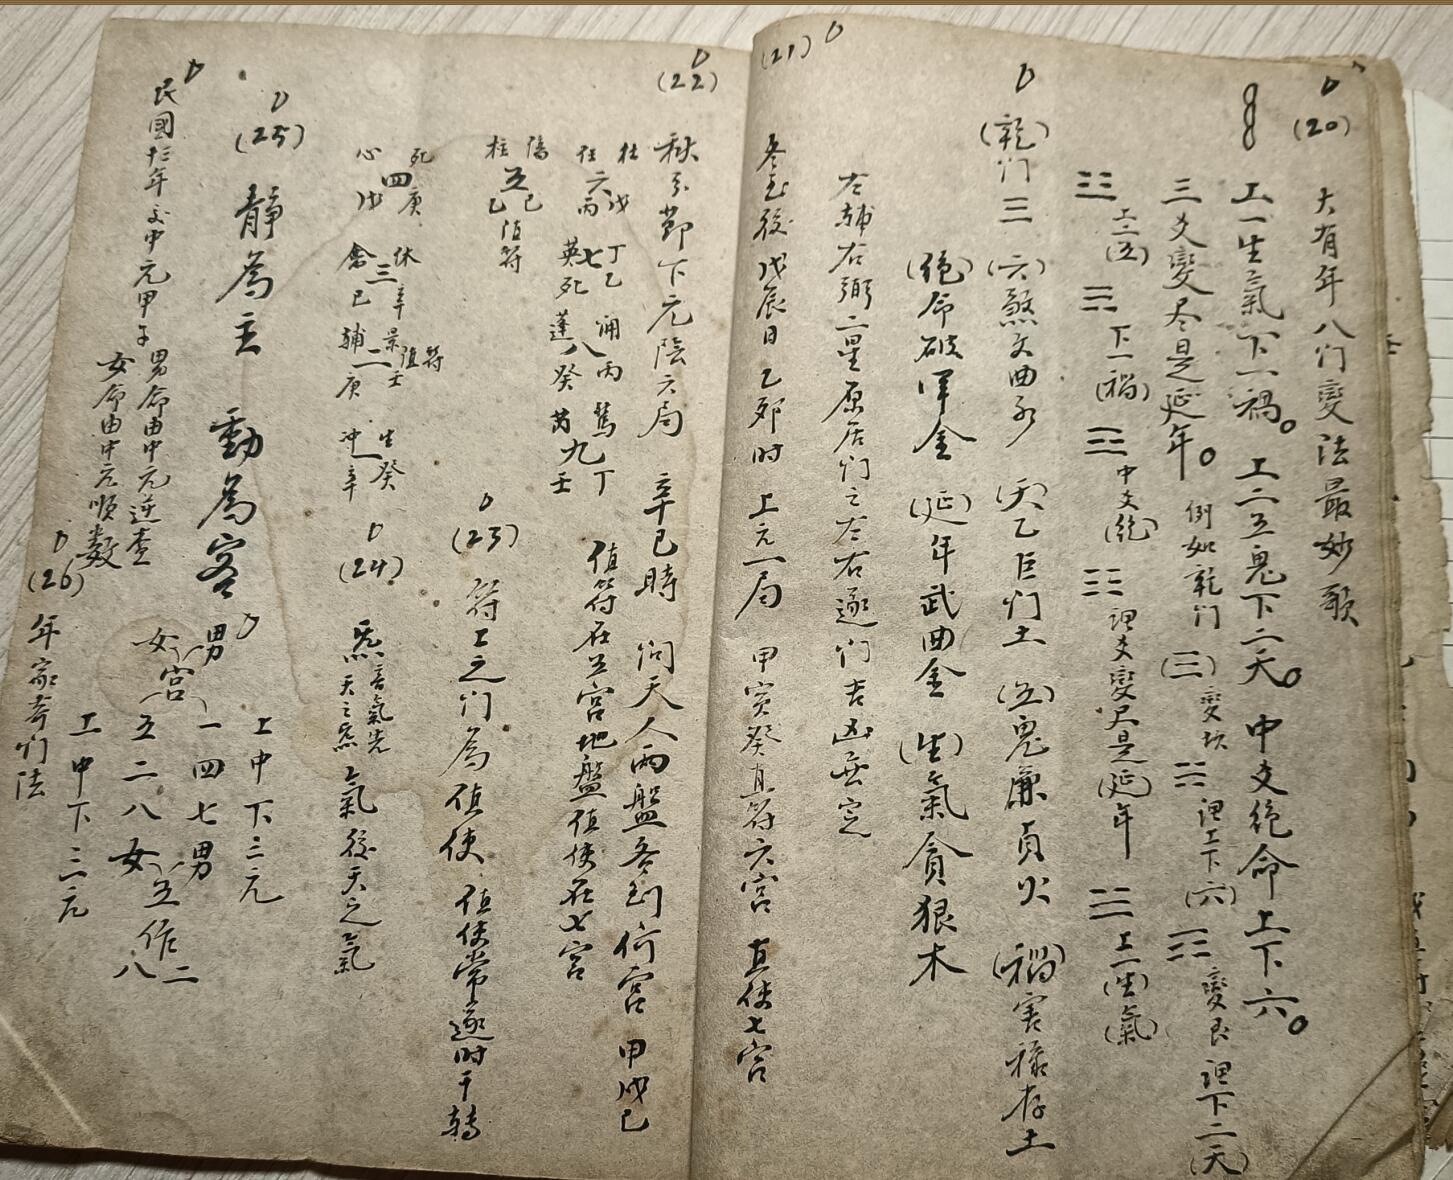 (20)
大有年八门變法最妙歌
工一生氣下一禍。工二五鬼下二天。中爻絶命上下六。
三爻變尽是延年。例如乾门(☰)變坎☵謂工下(六)☶變艮謂下二(天)
☲工二(五)☴下一(禍)☲中爻(絶)☷謂爻變尽是(延)年☱工一(生)(氣)
(乾)门☰(六)煞文曲水(天)乙巨门土(五)鬼廉貞火(禍)害祿存土
(絶)命破軍金(延)年武曲金(生)氣貪狼木
左輔右弼二星原居门之左右逐门吉凶無定
(21)
冬至後戊辰日乙卯时上元一局甲寅癸直符六宮直使七宮
(22)
秋分節下元陰六局辛巳時问天人兩盤各到何宮甲戌己
值符在五宮地盤值使在七宮
杜戊
任六丙
丁乙
英七死
丙
蓬八癸
驚丁
芮九壬
傷己
柱五乙值符
死庚
心四戊
休辛
禽三己
景壬值符
輔二庚
生癸
冲一辛
(23)
符工之门為值使值使常逐时干轉
(24)
炁音氣先天之炁氣後天之氣
(25)
靜為主動為客
男女宮
工中下三元
一四七男
五二八女
五作二八
工中下三元
民國十三年交中元甲子男命由中元逆查
女命由中元順数
(26)
年家奇门法